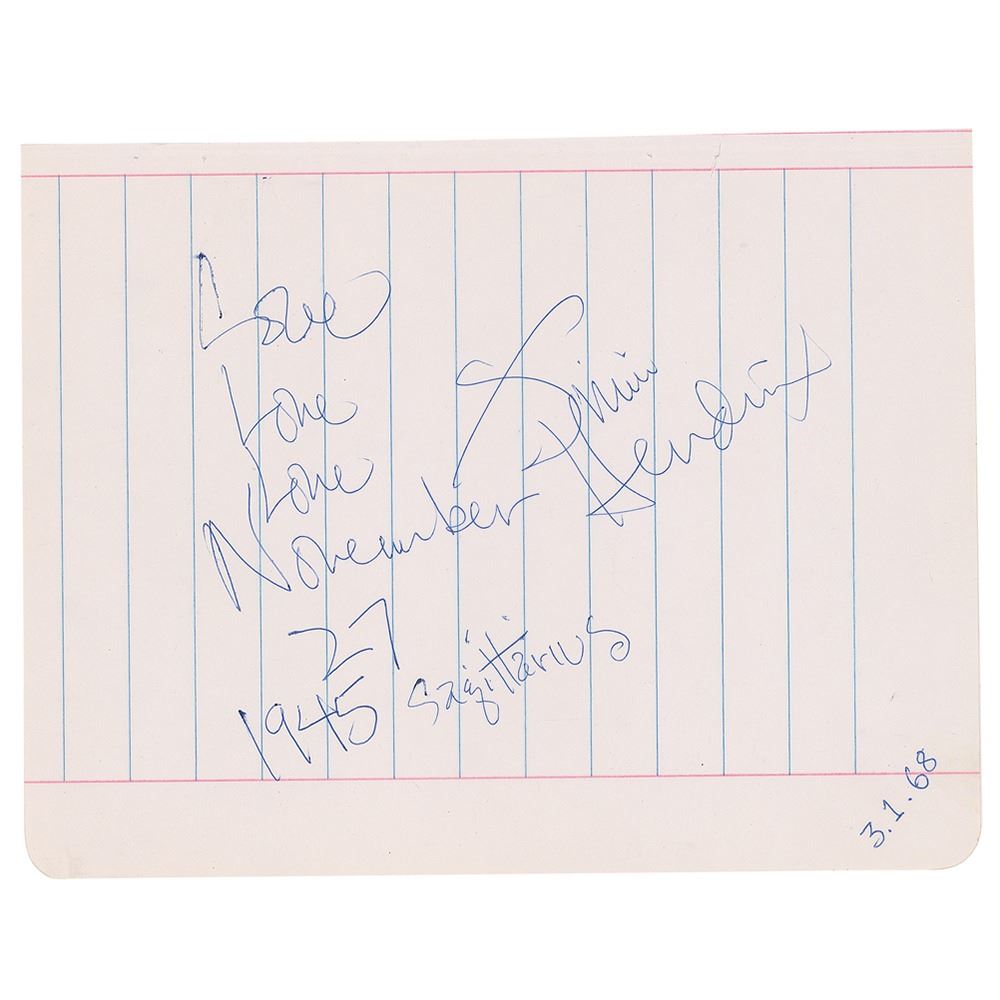 Love
Love
Love
Jimi
Hendrix
November
27
1945 Sagittarius
3.1.68